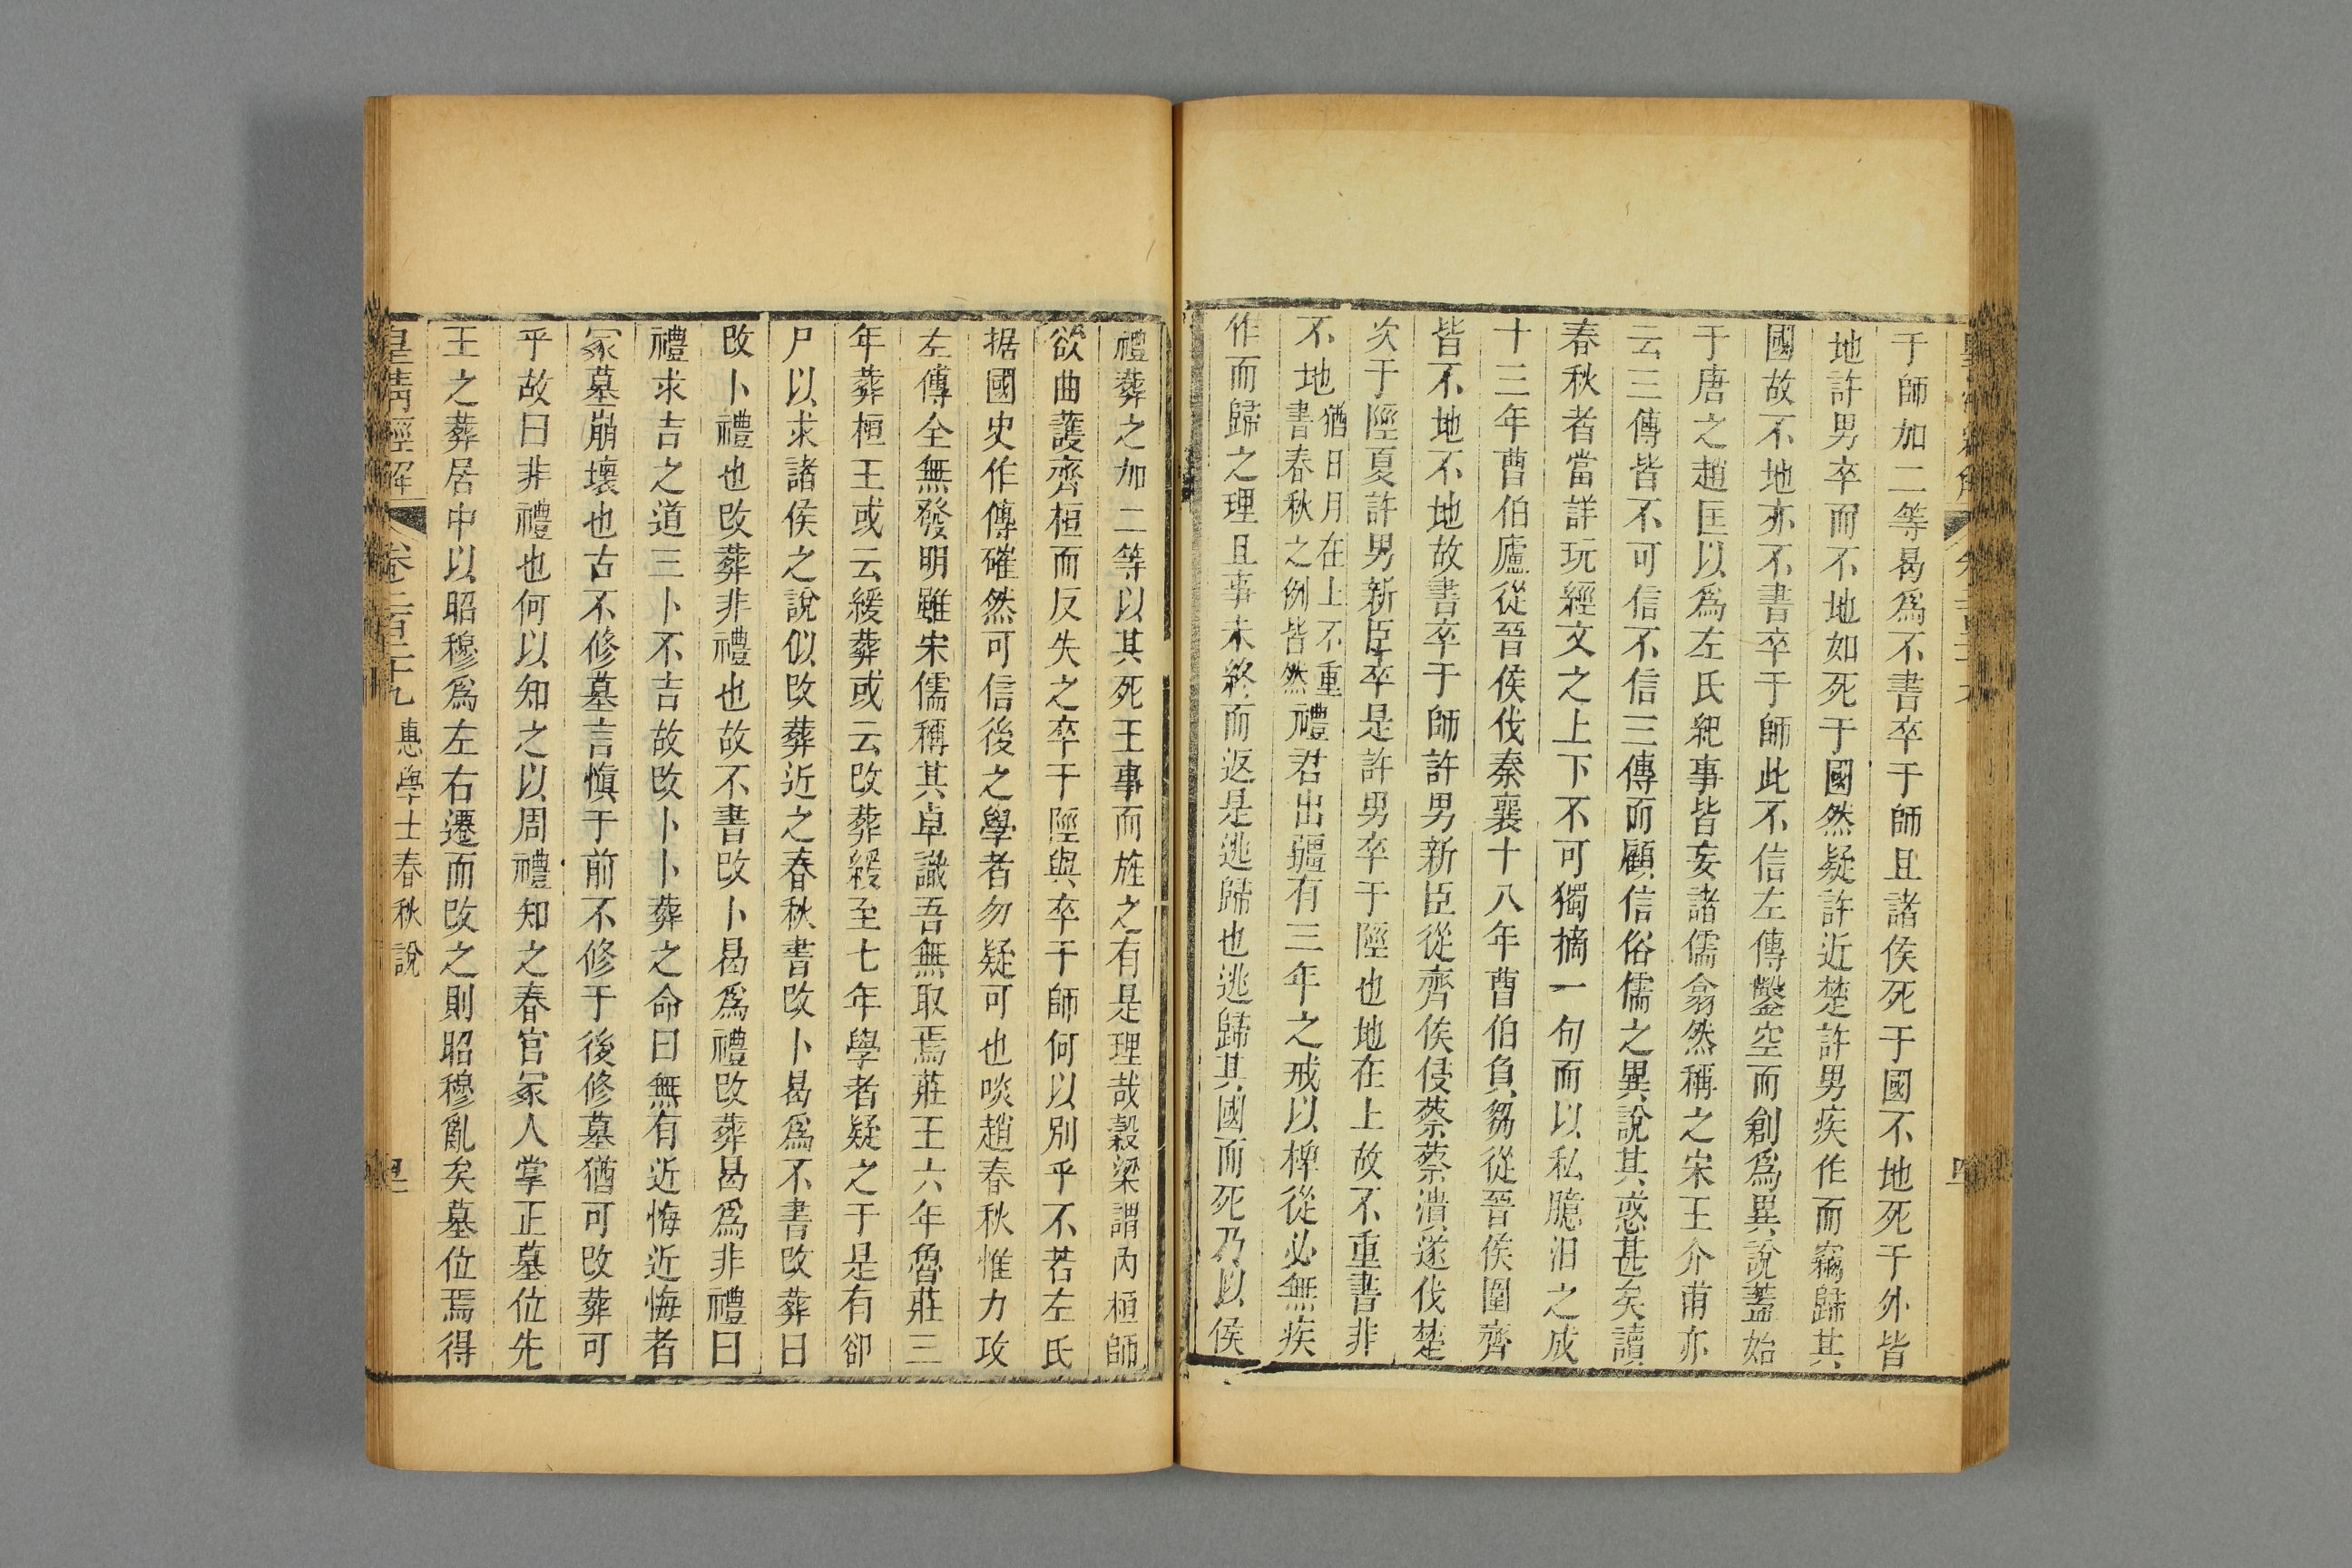 于師加二等曷爲不書卒于師且諸侯死于國不地死于外皆
地許男卒而不地如死于國然疑許近楚許男疾作而竊歸其
國故不地亦不書卒于師此不信左傳鑿空而創爲異說蓋始
于唐之趙匡以爲左氏紀事皆妄諸儒翕然稱之宋王介甫亦
云三傳皆不可信不信三傳而顧信俗儒之異說其惑甚矣讀
春秋者當詳玩經文之上下不可獨摘一句而以私臆汨之成
十三年曹伯廬從晉侯伐秦襄十八年曹伯負芻從晉侯圍齊
皆不地不地故書卒于師許男新臣從齊侯侵蔡蔡潰遂伐楚
次于陘夏許男新臣卒是許男卒于陘也地在上故不重書非
不地猶日月在上不重書春秋之例皆然禮君出疆有三年之戒以椑從必無疾
作而歸之理且事未終而返是逃歸也逃歸其國而死乃以侯
禮葬之加二等以其死王事而旌之有是理哉穀梁謂內桓師
欲曲護齊桓而反失之卒于陘與卒于師何以別乎不若左氏
据國史作傳確然可信後之學者勿疑可也啖趙春秋惟力攻
左傳全無發明雖宋儒稱其卓識吾無取焉莊王六年魯莊三
年葬桓王或云緩葬或云改葬緩至七年學者疑之于是有卻
尸以求諸侯之說似改葬近之春秋書改卜曷爲不書改葬曰
改卜禮也改葬非禮也故不書改卜曷爲禮改葬曷爲非禮曰
禮求吉之道三卜不吉故改卜卜葬之命曰無有近悔近悔者
冢墓崩壞也古不修墓言慎于前不修于後修墓猶可改葬可
乎故曰非禮也何以知之以周禮知之春官冢人掌正墓位先
王之葬居中以昭穆爲左右遷而改之則昭穆亂矣墓位焉得
皇清經解 卷二百二十九 惠學士春秋說